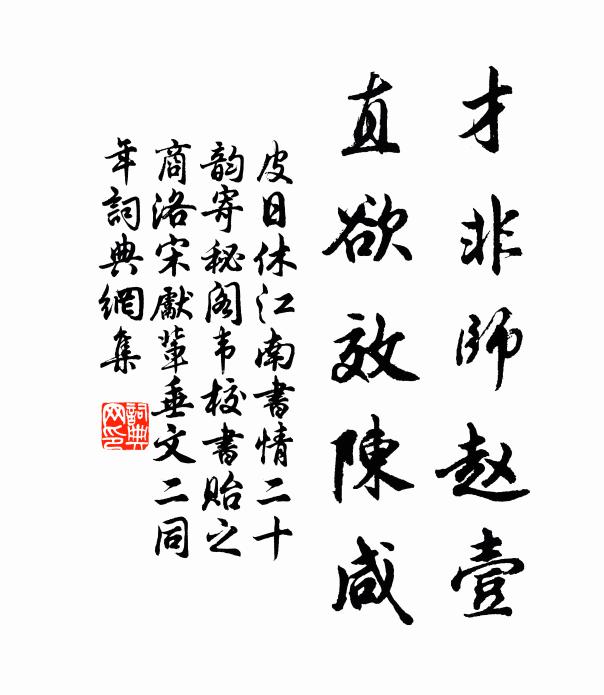 才非师赵壹
直欲效陳咸
皮日休江南書情二十
韵寄秘阁韦校書贻之
商洛宋獻輩垂文二同
年詞典網集
詞典网印